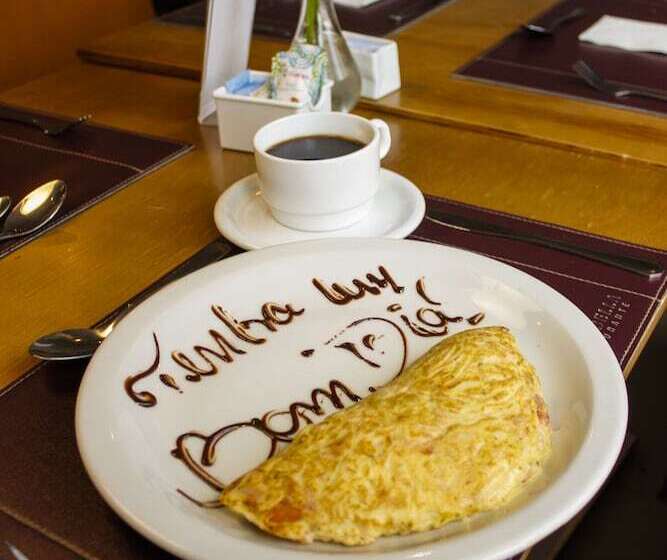 Tenha um
Bom Dia!